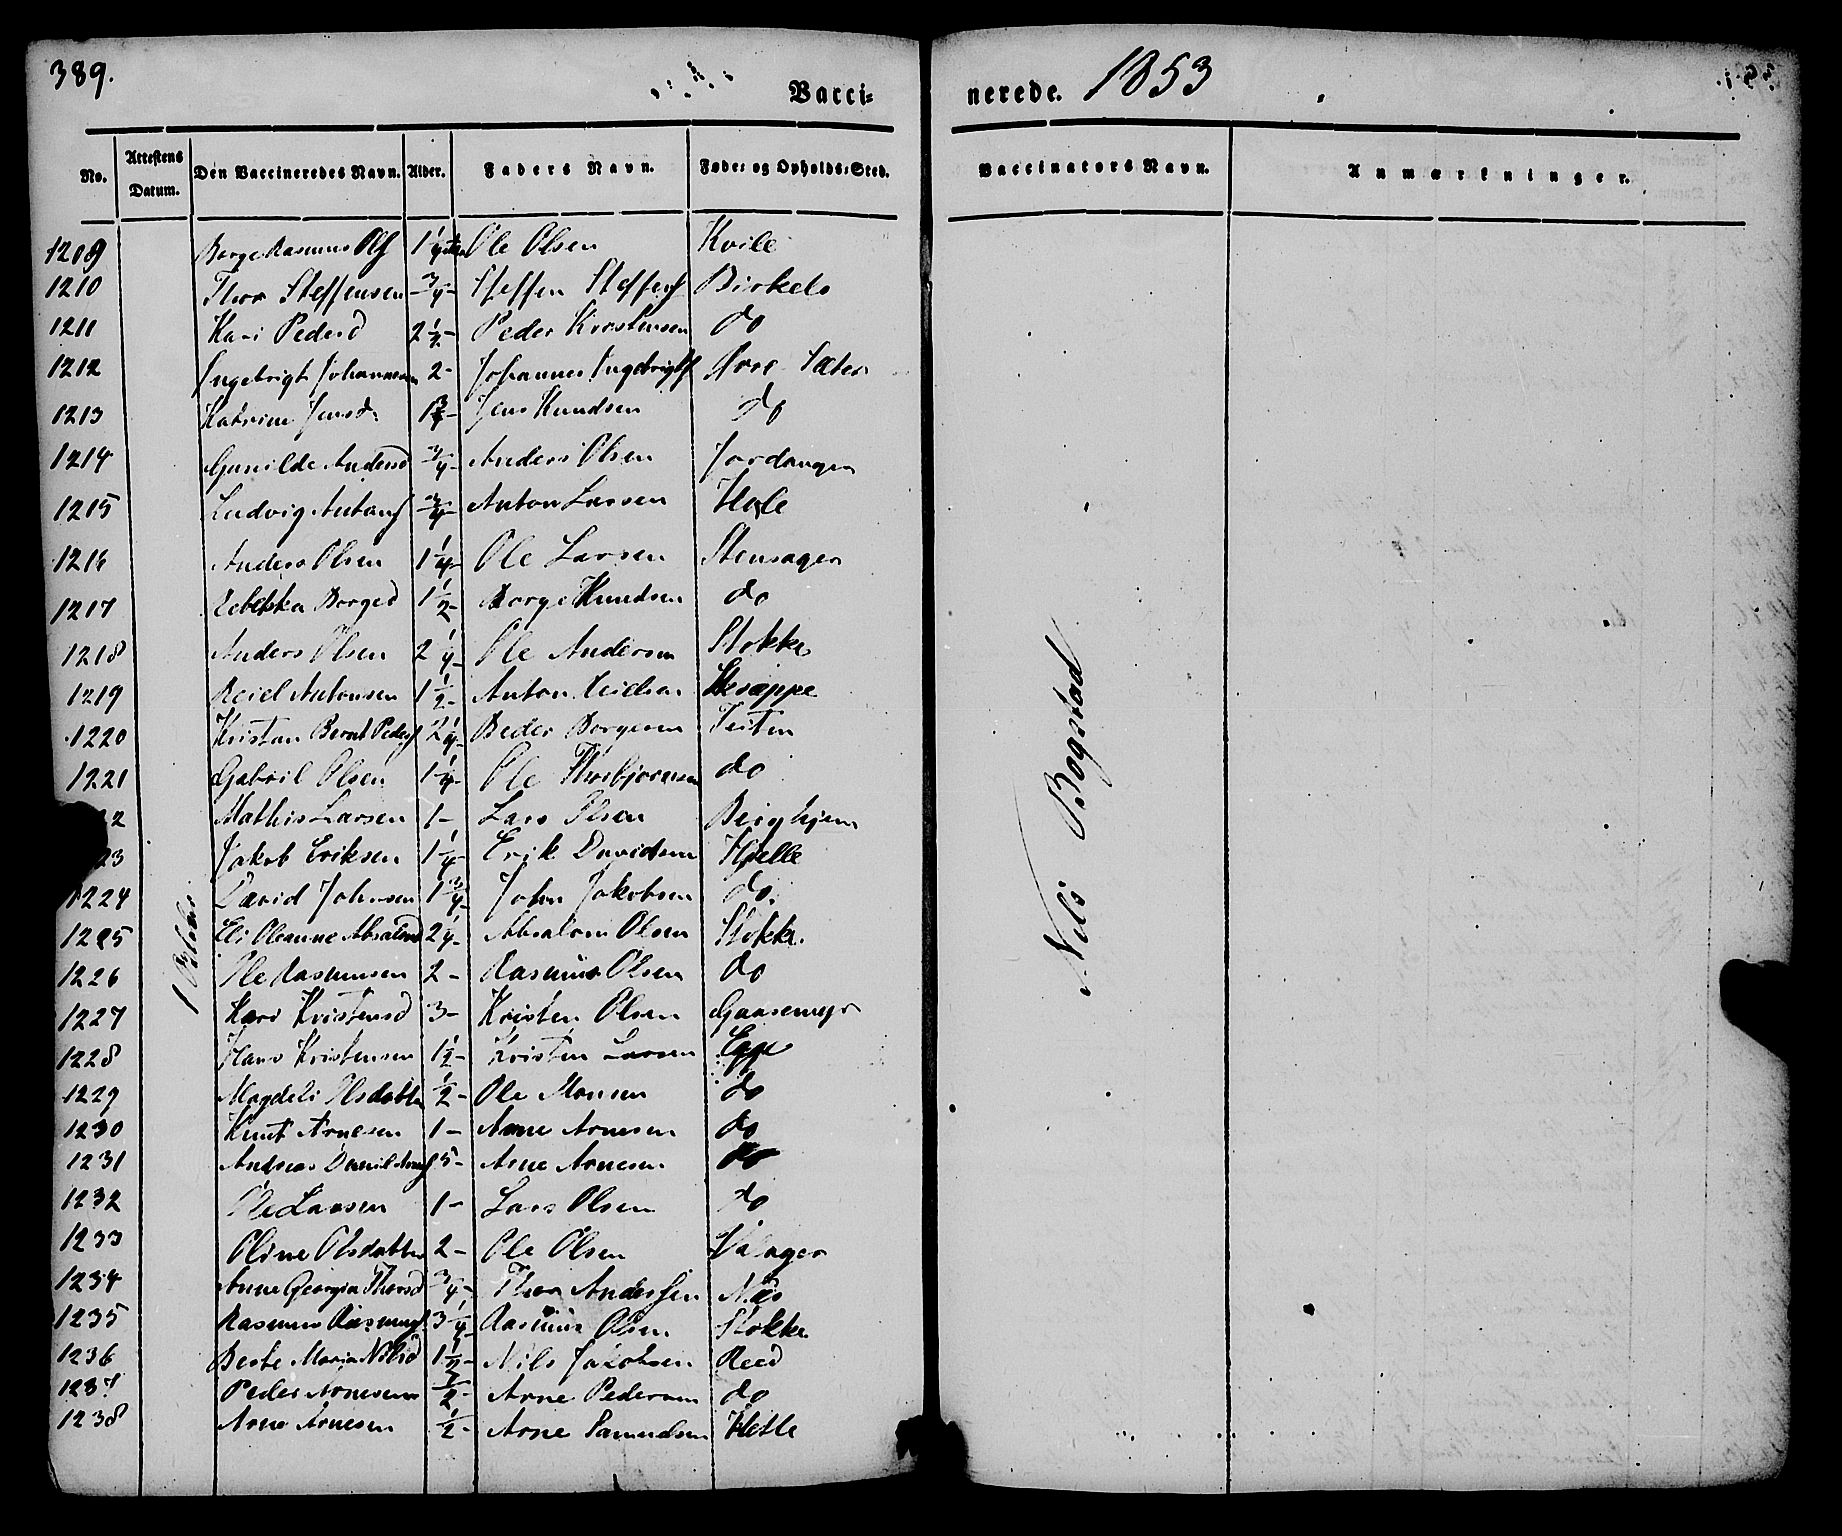 389.
Vacci- nerede. 1853
No. Attestens Datum. Den Vaccineredes Navn. Alder. Faders Navn. Føde- og Opholds-Sted. Vaccinators Navn. Anmærkninger.
1209 Børge Rasmus Ols 1 1/4 Ole Olsen Kvile
1210 Thor Steffensen 3/4 - Steffen Steffens Birkelo
1211 Kari Pedersd 2 1/2 - Peder Kirstensen do
1212 Ingebrigt Johannesen 2 - Johannes Ingebrigts
1213 Katrine Jensd. 1 3/4 - Jens Knudsen do
1214 Gunilde Andersd 3/4 - Anders Olsen Jordanger
1215 Ludvig Antons 3/4 - Anton Larsen Hole
1216 Anders Olsen 1 1/4 - Ole Larsen Stensager
1217 Rebekka Børged 1 1/2 - Børge Knudsen do
1218 Anders Olsen 2 1/4 - Ole Andersen Stokke
1219 Reiel Antonsen 1 1/2 - Anton
1220 Kristan Bernt Peders 2 1/4 - Peder Børgesen Teiten
1221 Gabriel Olsen 1 1/4 - Ole Thorbjørnsen do
22 Mathis Larsen 1 - Lars Olsen Berghjem
23 Jakob Eriksen 1 1/4 - Erik Davidsen Hjelle
1224 David Johnsen 1 3/4 - John Jakobsen do.
1225 Eli Oleanne Absalonsd 2 1/4 - Absalon Olsen Stokke.
1226 Ole Rasmussen 2 - Rasmus Olsen do
1227 Kari Kristensd 3 - Kristen Olsen Gaasemyr
1228 Hans Kristensen 1 1/2 - Kristen Larsen Egge
1229 Magdeli Olsdatter 1/2 - Ole Monsen do
1230 Knut Arnesen 1 - Arne Arnesen do
1231 Andreas Daniel Arnes 5 - Arne Arnesen do
1232 Ole Larsen 1 - Lars Olsen do
1233 Oline Olsdatter 2 - Ole Olsen
1234 Anne Georgine Thorsd 3/4 - Thor Andersen Næs
1235 Rasmus Rasmuss. 3 1/4 - Rasmus Olsen Stokke
1236 Beste Marie Nilsd 1 1/2 - Nils Jakobsen Reed
1237 Peder Arnesen 1/2 - Arne Pedersen do
1238 Arne Arnesen 1/2 - Arne Samuelsen Hetle
1 Oktober
Nils Bogstad